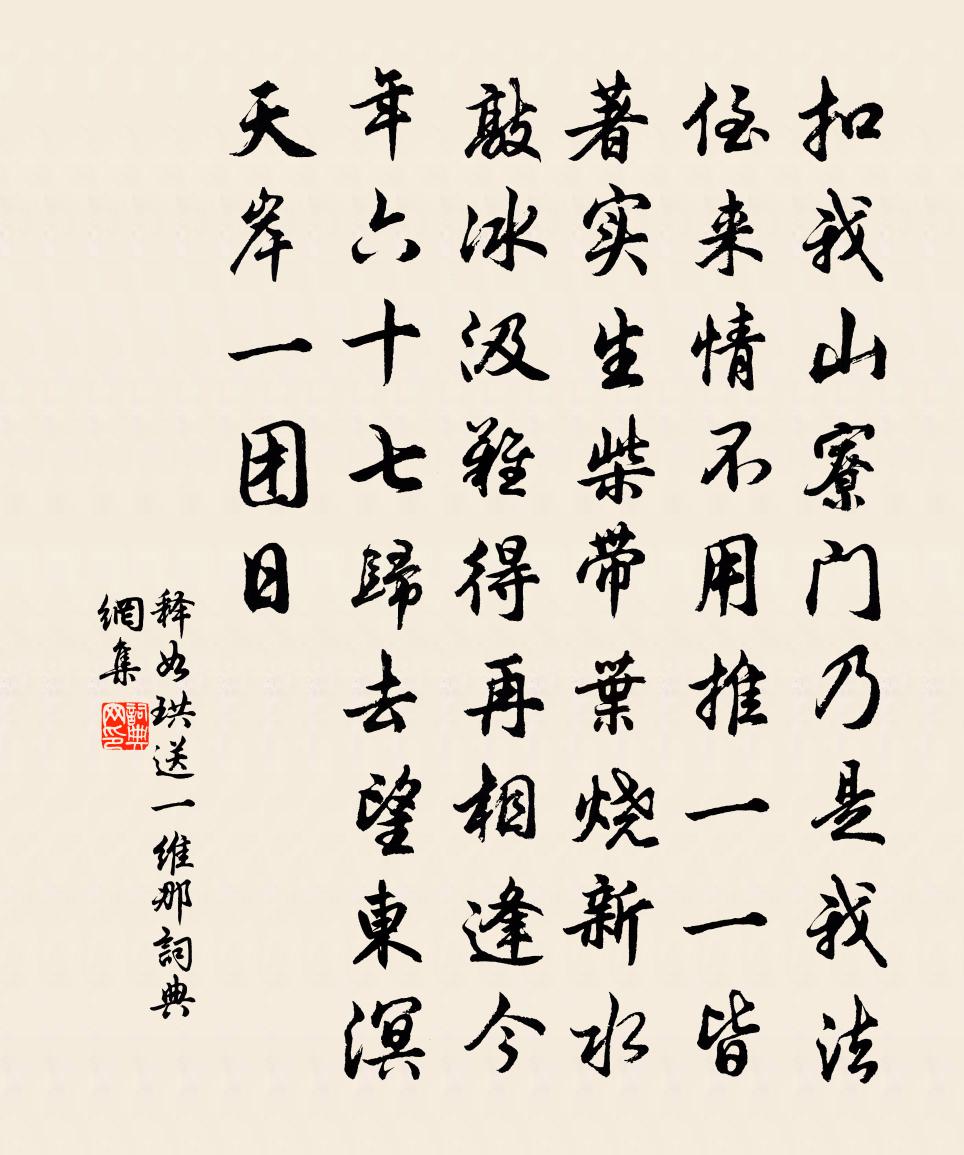 扣我山寮门乃是我法
侄来情不用推一一皆
著实生柴带葉烧新水
敲冰汲難得再相逢今
年六十七歸去望東溟
天岸一团日
释如珙送一維那詞典
網集
詞典
网印